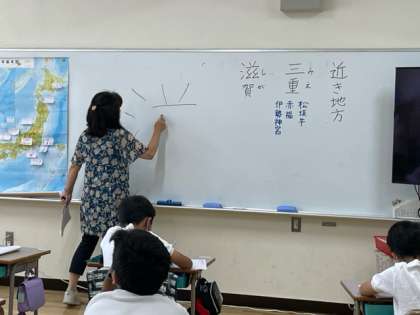 近き地方
三重
みえ
松坂牛
赤福
伊勢神宮
滋賀
しが